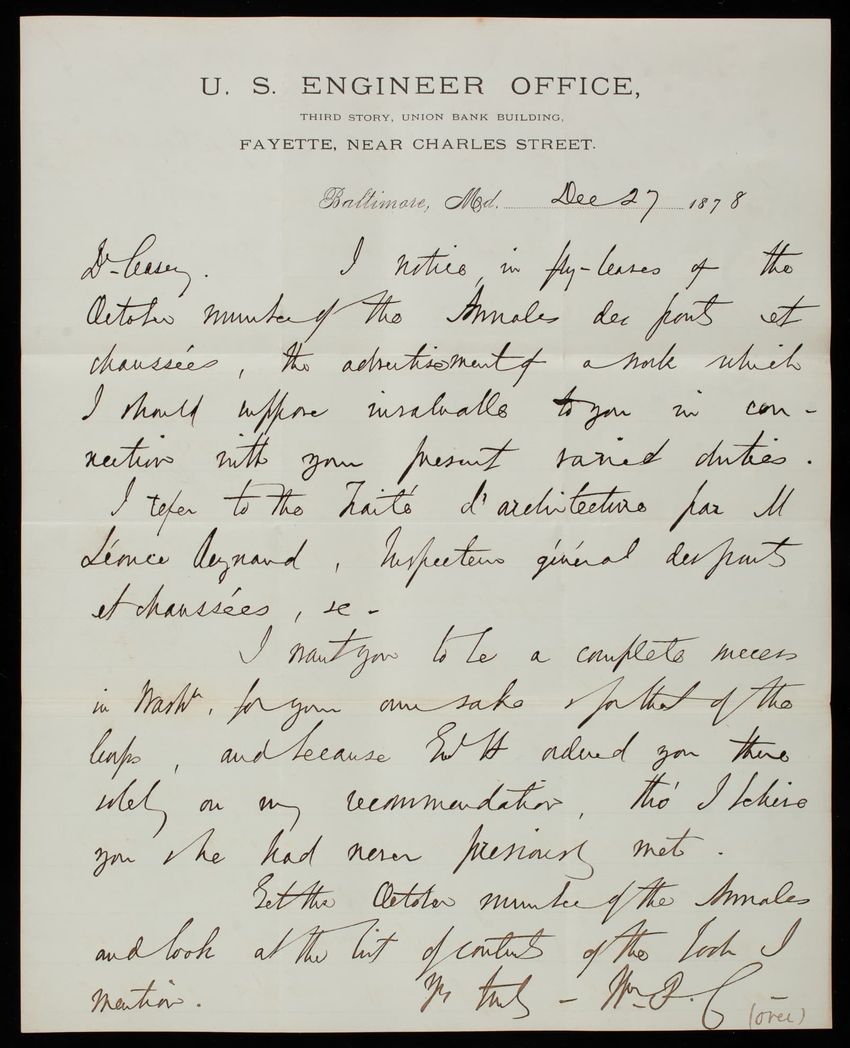 U. S. ENGINEER OFFICE,
THIRD STORY, UNION BANK BUILDING,
FAYETTE, NEAR CHARLES STREET.
Baltimore, Md. Dec 27 1878
Dr Casey. I notice, in fly-leaves of the
October number of the Annales des ponts et
chaussées, the advertisement of a work which
I should suppose invaluable to you in con-
nection with your present varied duties.
I refer to the Traité d'architecture par M
Léonce Reynaud, Inspecteur général des ponts
et chaussées, &c -
I want you to be a complete success
in Washn, for your own sake & for that of the
Corps, and because Genl H ordered you there
solely on my recommendation, tho' I believe
you & he had never previously met.
Get the October number of the Annales
and look at the list of contents of the book I
mention. Yrs truly - Wm P. C
(over)